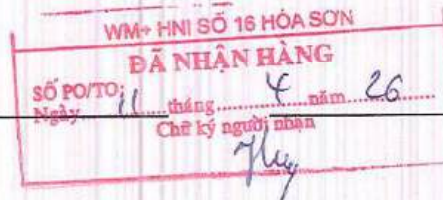 WM+ HNI SỐ 16 HÒA SƠN
ĐÃ NHẬN HÀNG
SỐ PO/TO:
Ngày 11 tháng 4 năm 26
Chữ ký người nhận
Huy